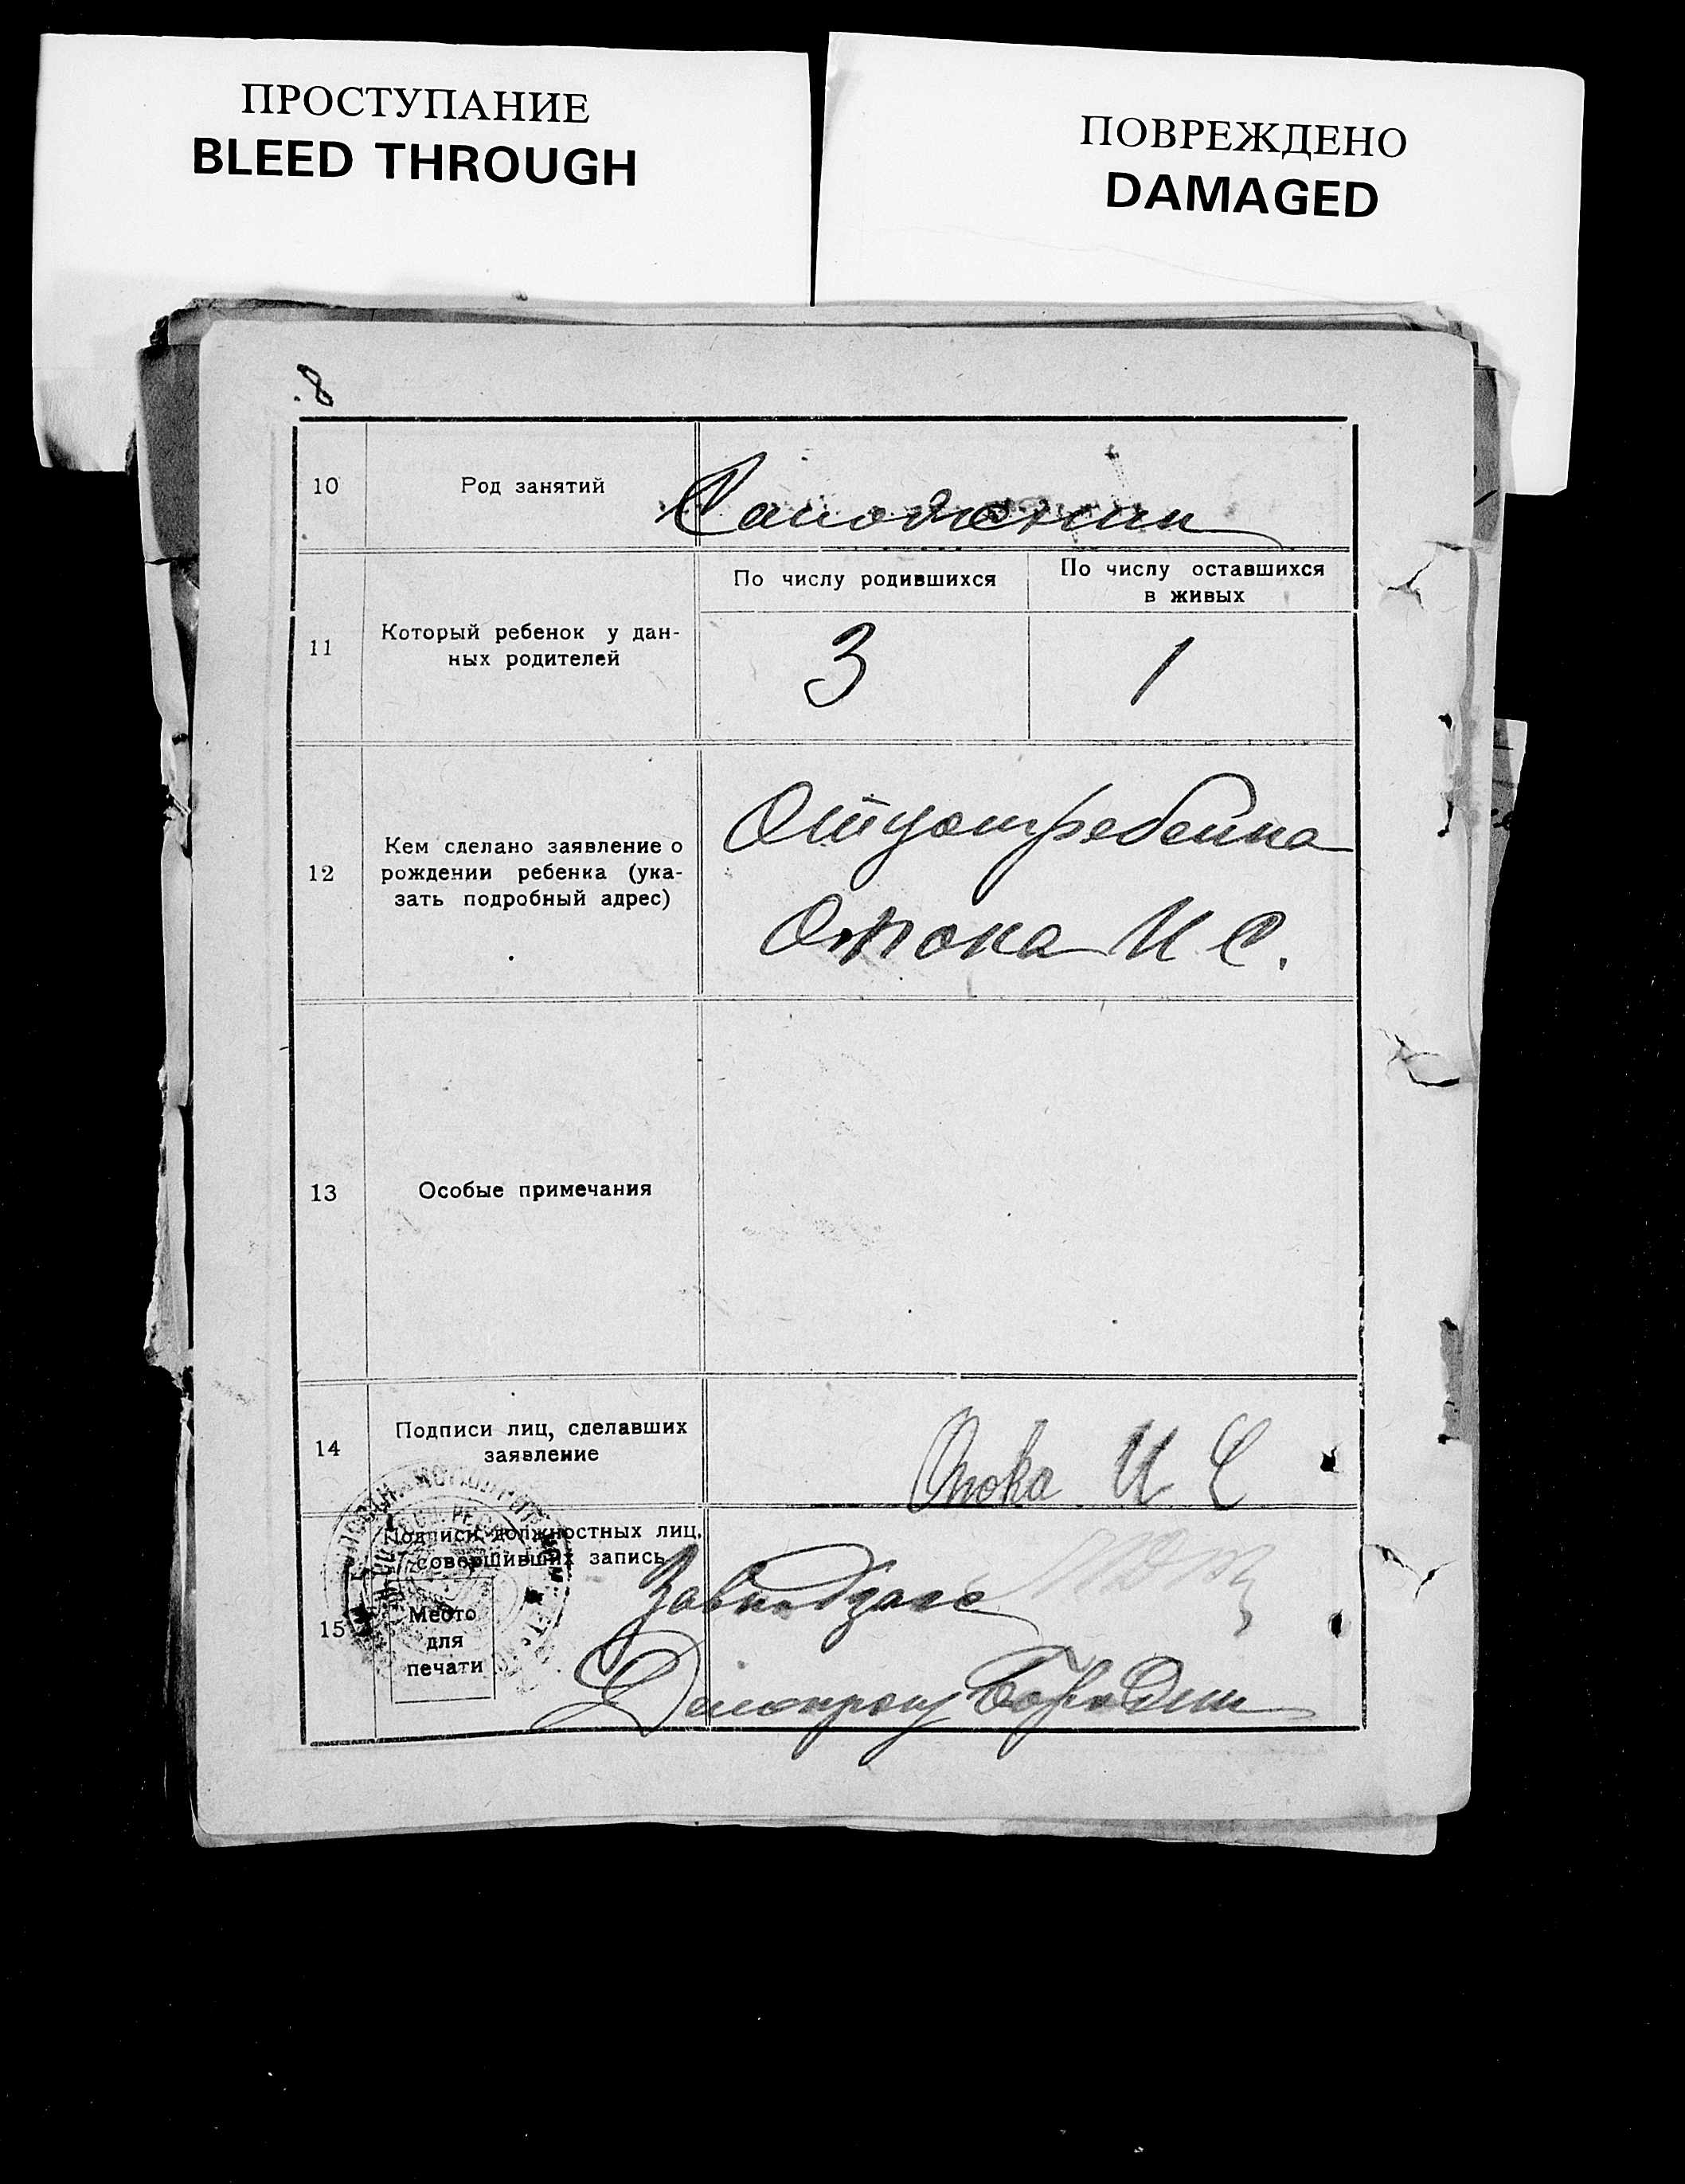 ПРОСТУПАНИЕ
BLEED THROUGH
ПОВРЕЖДЕНО
DAMAGED
8
10
Род занятий
Сапожник
11
Который ребенок у дан-
ных родителей
По числу родившихся
По числу оставшихся
в живых
3
1
12
Кем сделано заявление о
рождении ребенка (ука-
зать подробный адрес)
Отцом ребенка
Опока И С.
13
Особые примечания
14
Подписи лиц, сделавших
заявление
Опока И С
15
Подписи должностных лиц,
совершивших запись
Место
для
печати
Завподзагс
Делопроиз Бородин